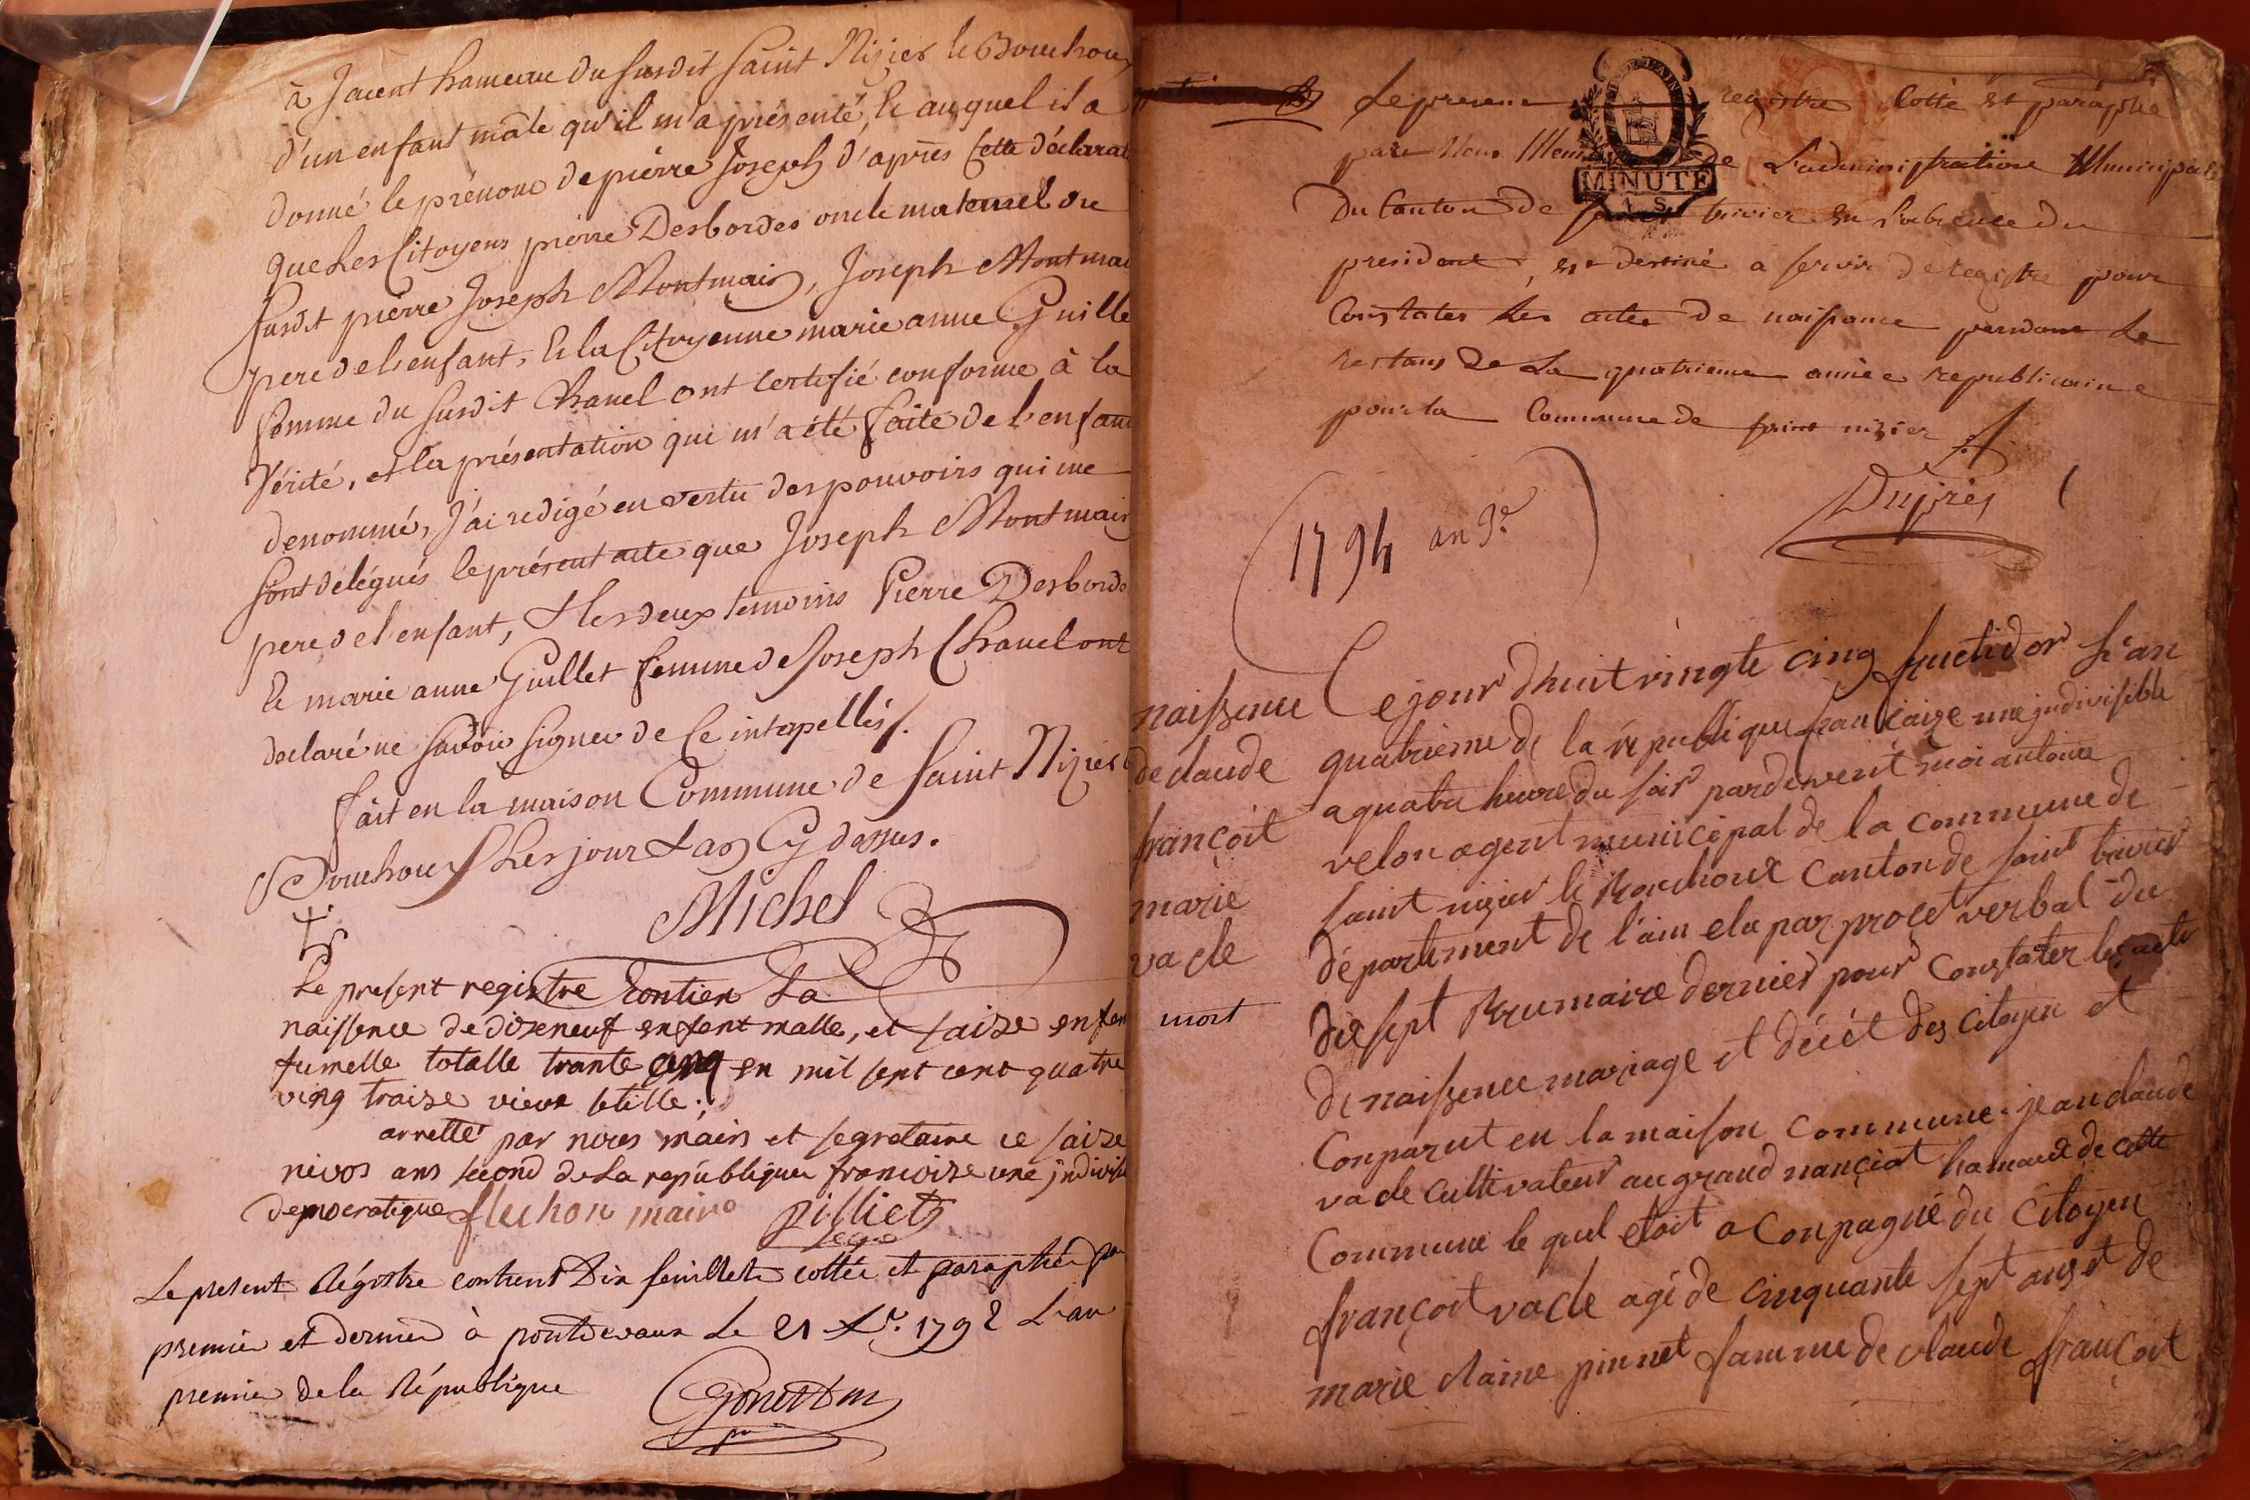 à Jacent hameau du susdit saint Nizier le Bouchoux
d'un enfant mâle qu'il m'a présenté, & auquel il a
donné le prénom de pierre Joseph d'après Cette déclarat
que Les Citoyens pierre Desbordes oncle maternel du
susdit pierre Joseph Montmain, Joseph Montmai
pere de l'enfant, & la Citoyenne marie anne Guille
femme du susdit Chanel ont certifié conforme à la
Vérité, et la présentation qui m'a été faite de l'enfant
denommé, J'ai redigé en vertu des pouvoirs qui me
sont delégués le présent acte que Joseph Montmain
pere de l'enfant, & les deux temoins Pierre Desborde
& marie anne Guillet femme de Joseph Chanel ont
declaré ne savoir signer de Ce interpellés.
fait en la maison Commune de saint Nizier b
Bouchoux Les jour & an Cy dessus.
Michel
Le present registre Contien La
naissence de dixneuf enfent malle, et saize enfen
fumelle totalle trante cinq en mil sept cent quatre
ving traize vieux stille.
arretté par nous maire et segretaire ce saize
nivos ans second de La republique francoize une indivisi
democratique fluchon maire pilliet
segre
Le present Régistre contient Dix feuillets cottée et paraphée par
premier et dernier à pontdevaux Le 21 Xbr. 1792 L'an
premier de la République
Gonet
naissence
de claude
françoit
marie
vacle
mort
Le present registre Cotté et paraphé
par Nous Mem de L'administration Municipale
Du Canton de trivier en L'absence du
president, est destiné a servir de registre pour
Constater Les actes de naissance pendant Le
restans de La quatrieme année republicaine
pour la Commune de saint nizier
Duprés
1794 an 3e
Ce jour dhuit vingte cinq fructidor L'an
quatrieme de la république françaize une indivisible
a quatre heure du soir pardevent moi antoine
velon agent municipal de la commune de
saint nizier le Bouchoux canton de saint trivier
département de l'ain elu par procet verbal du
dix sept Brumaire dernier pour constater les acte
de naissence mariage et décét des citoyen et
Conparut en la maison commune. jean claude
vacle cultivateur au grand nanciat hamaux de cette
Commune le quel etoit aconpagné du Citoyen
françoit vacle agé de cinquante sept ans et de
marie claine pinnet famme de claude françoit